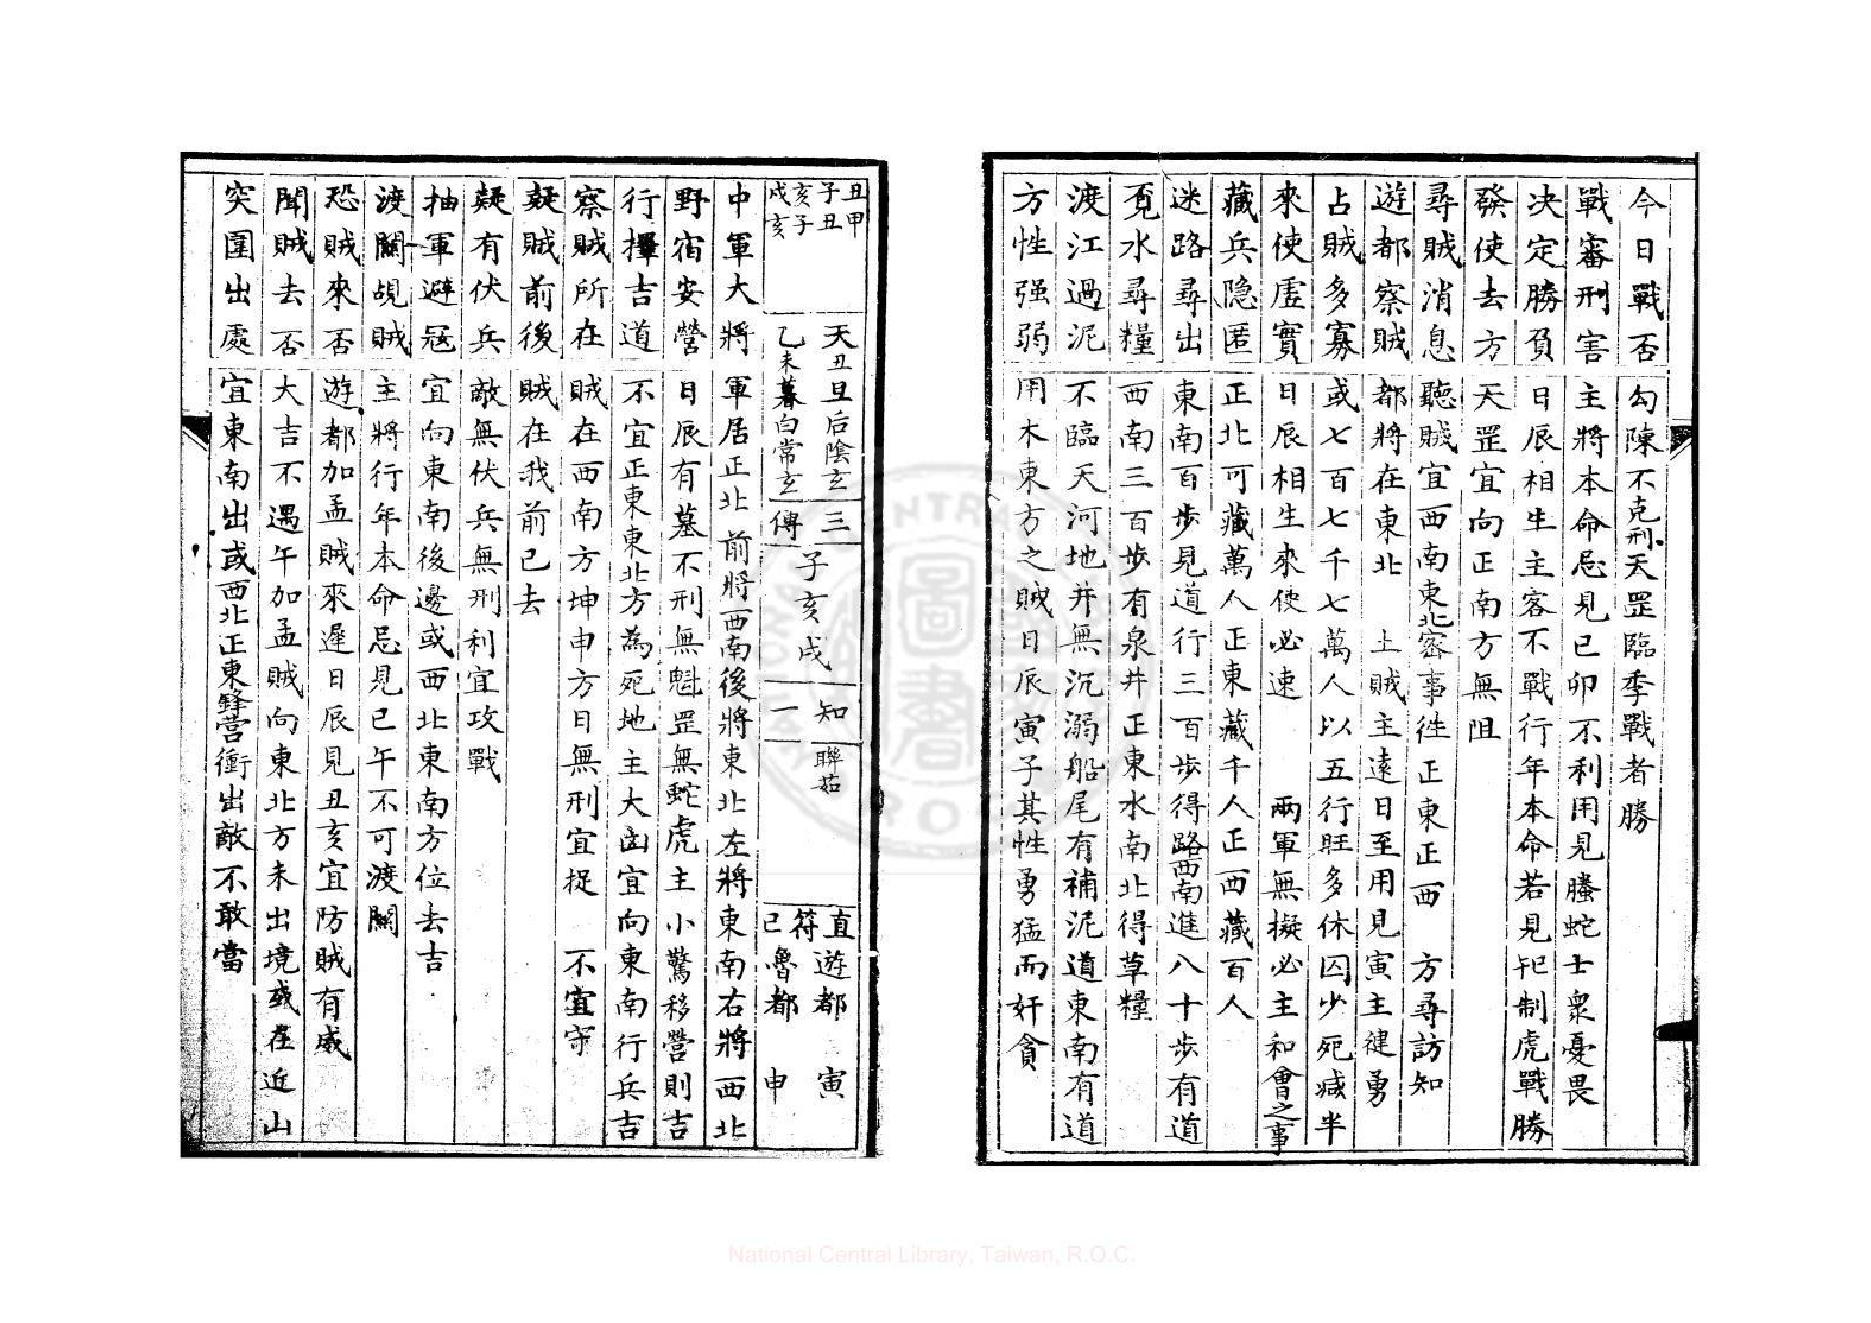 今日戰否 勾陳不克刑天罡臨季戰者勝
戰審刑害 主將本命忌見巳卯不利用見螣蛇士衆憂畏
决定勝負 日辰相生主客不戰行年本命若見制虎戰勝
發使去方 天罡宜向正南方無阻
尋賊消息 聽賊宜西南東北密事徃正東正西 方尋訪知
遊都察賊 都將在東北 上賊主遠日至用見寅主健勇
占賊多寡 或七百七千七萬人以五行旺多休囚少死減半
來使虛實 日辰相生來使必速 兩軍無擬必主和會之事
藏兵隐匿 正北可藏萬人正東藏千人正西藏百人
迷路尋出 東南百步見道行三百步得路西南進八十步有道
覓水尋糧 西南三百步有泉井正東水南北得草糧
渡江過泥 不臨天河地井無沉溺船尾有補泥道東南有道
方性强弱 用木東方之賊日辰寅子其性勇猛而奸貪
丑甲
子丑
亥子
戌亥
天丑旦后陰玄
乙未暮白常玄
三傳
子亥戌
知一
聯茹
直符巳
遊都 寅
魯都 申
中軍大將 軍居正北 前將西南後將東北左將東南右將西北
野宿安營 日辰有墓不刑無魁罡無蛇虎主小驚移營則吉
行擇吉道 不宜正東東北方為死地主大凶宜向東南行兵吉
察賊所在 賊在西南方坤申方日無刑宜捉 不宜守
疑賊前後 賊在我前已去
疑有伏兵 敵無伏兵無刑利宜攻戰
抽軍避冦 宜向東南後邊或西北東南方位去吉
渡關覘賊 主將行年本命忌見巳午不可渡關
恐賊來否 遊都加孟賊來遲日辰見丑亥宜防賊有威
聞賊去否 大吉不遇午加孟賊向東北方未出境或在近山
突圍出處 宜東南出或西北正東鋒营衝出敵不敢當
National Central Library, Taiwan, R.O.C.